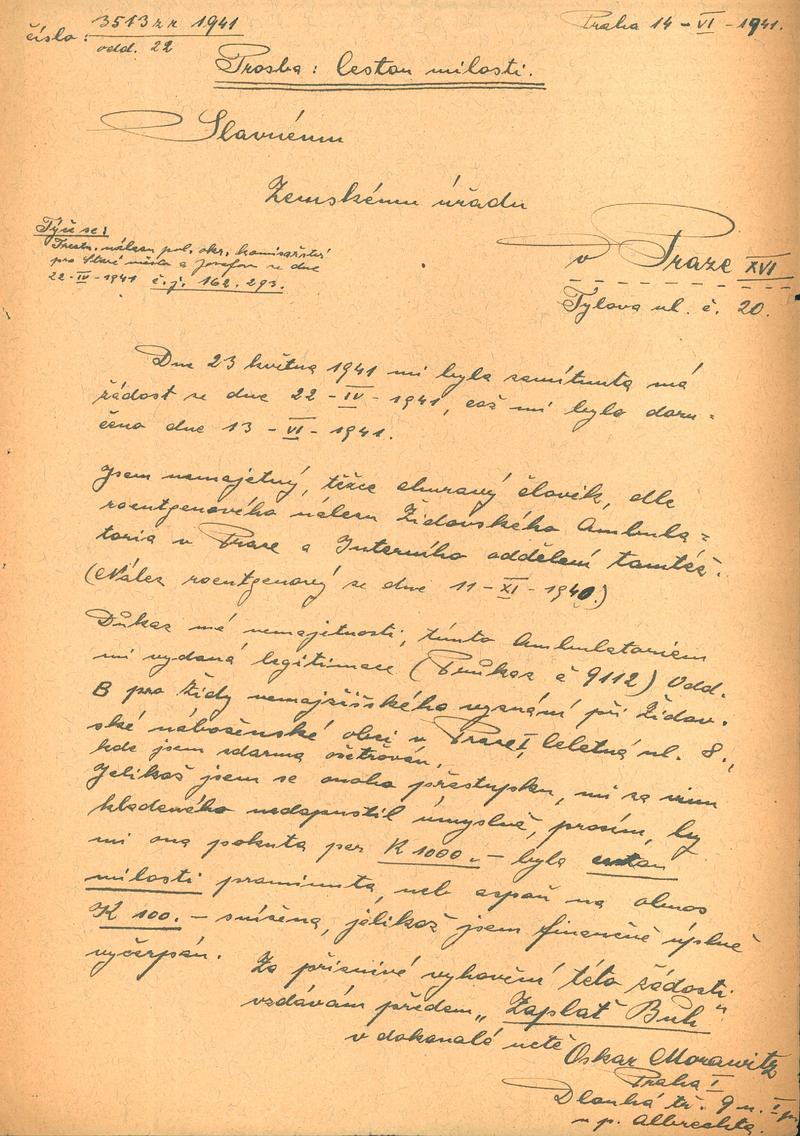 číslo: 3513 zz 1941
odd. 22
Praha 14 - VI - 1941.
Prosba: cestou milosti.
Slavnému
Zemskému úřadu
v Praze XVI
Tylova ul. č. 20.
Týče se:
Trestn. nálezu pol. okr. komisařství
pro Staré město a Josefov ze dne
22 - IV - 1941 č. j. 162.293.
Dne 23 května 1941 mi byla zamítnuta má
žádost ze dne 22 - IV - 1941, což mi bylo doru=
čeno dne 13 - VI - 1941.
Jsem nemajetný, těžce churavý člověk, dle
roentgenového nálezu Židovského Ambula=
toria v Praze a Interního oddělení tamtéž.
(Nález roentgenový ze dne 11 - XI - 1940.)
Důkaz mé nemajetnosti, tímto Ambulatoriem
mi vydaná legitimace (Průkaz č 9112) Odd.
B pro Židy nemojžíšského vyznání při Židov.
ské náboženské obci v Praze I, Celetná ul. 8.,
kde jsem zdarma ošetřován.
Jelikož jsem se onoho přestupku, mi za vinu
kladeného nedopustil úmyslně, prosím, by
mi ona pokuta per K 1000.- byla cestou
milosti prominuta, neb aspoň na obnos
K 100.- snížena, jelikož jsem finančně úplně
vyčerpán.
Za příznivé vyhovění této žádosti
vzdávám předem „Zaplať Bůh"
v dokonalé úctě
Oskar Morawitz
Praha I
Dlouhá tř. 9 n. I p.
u p. Albrechta.